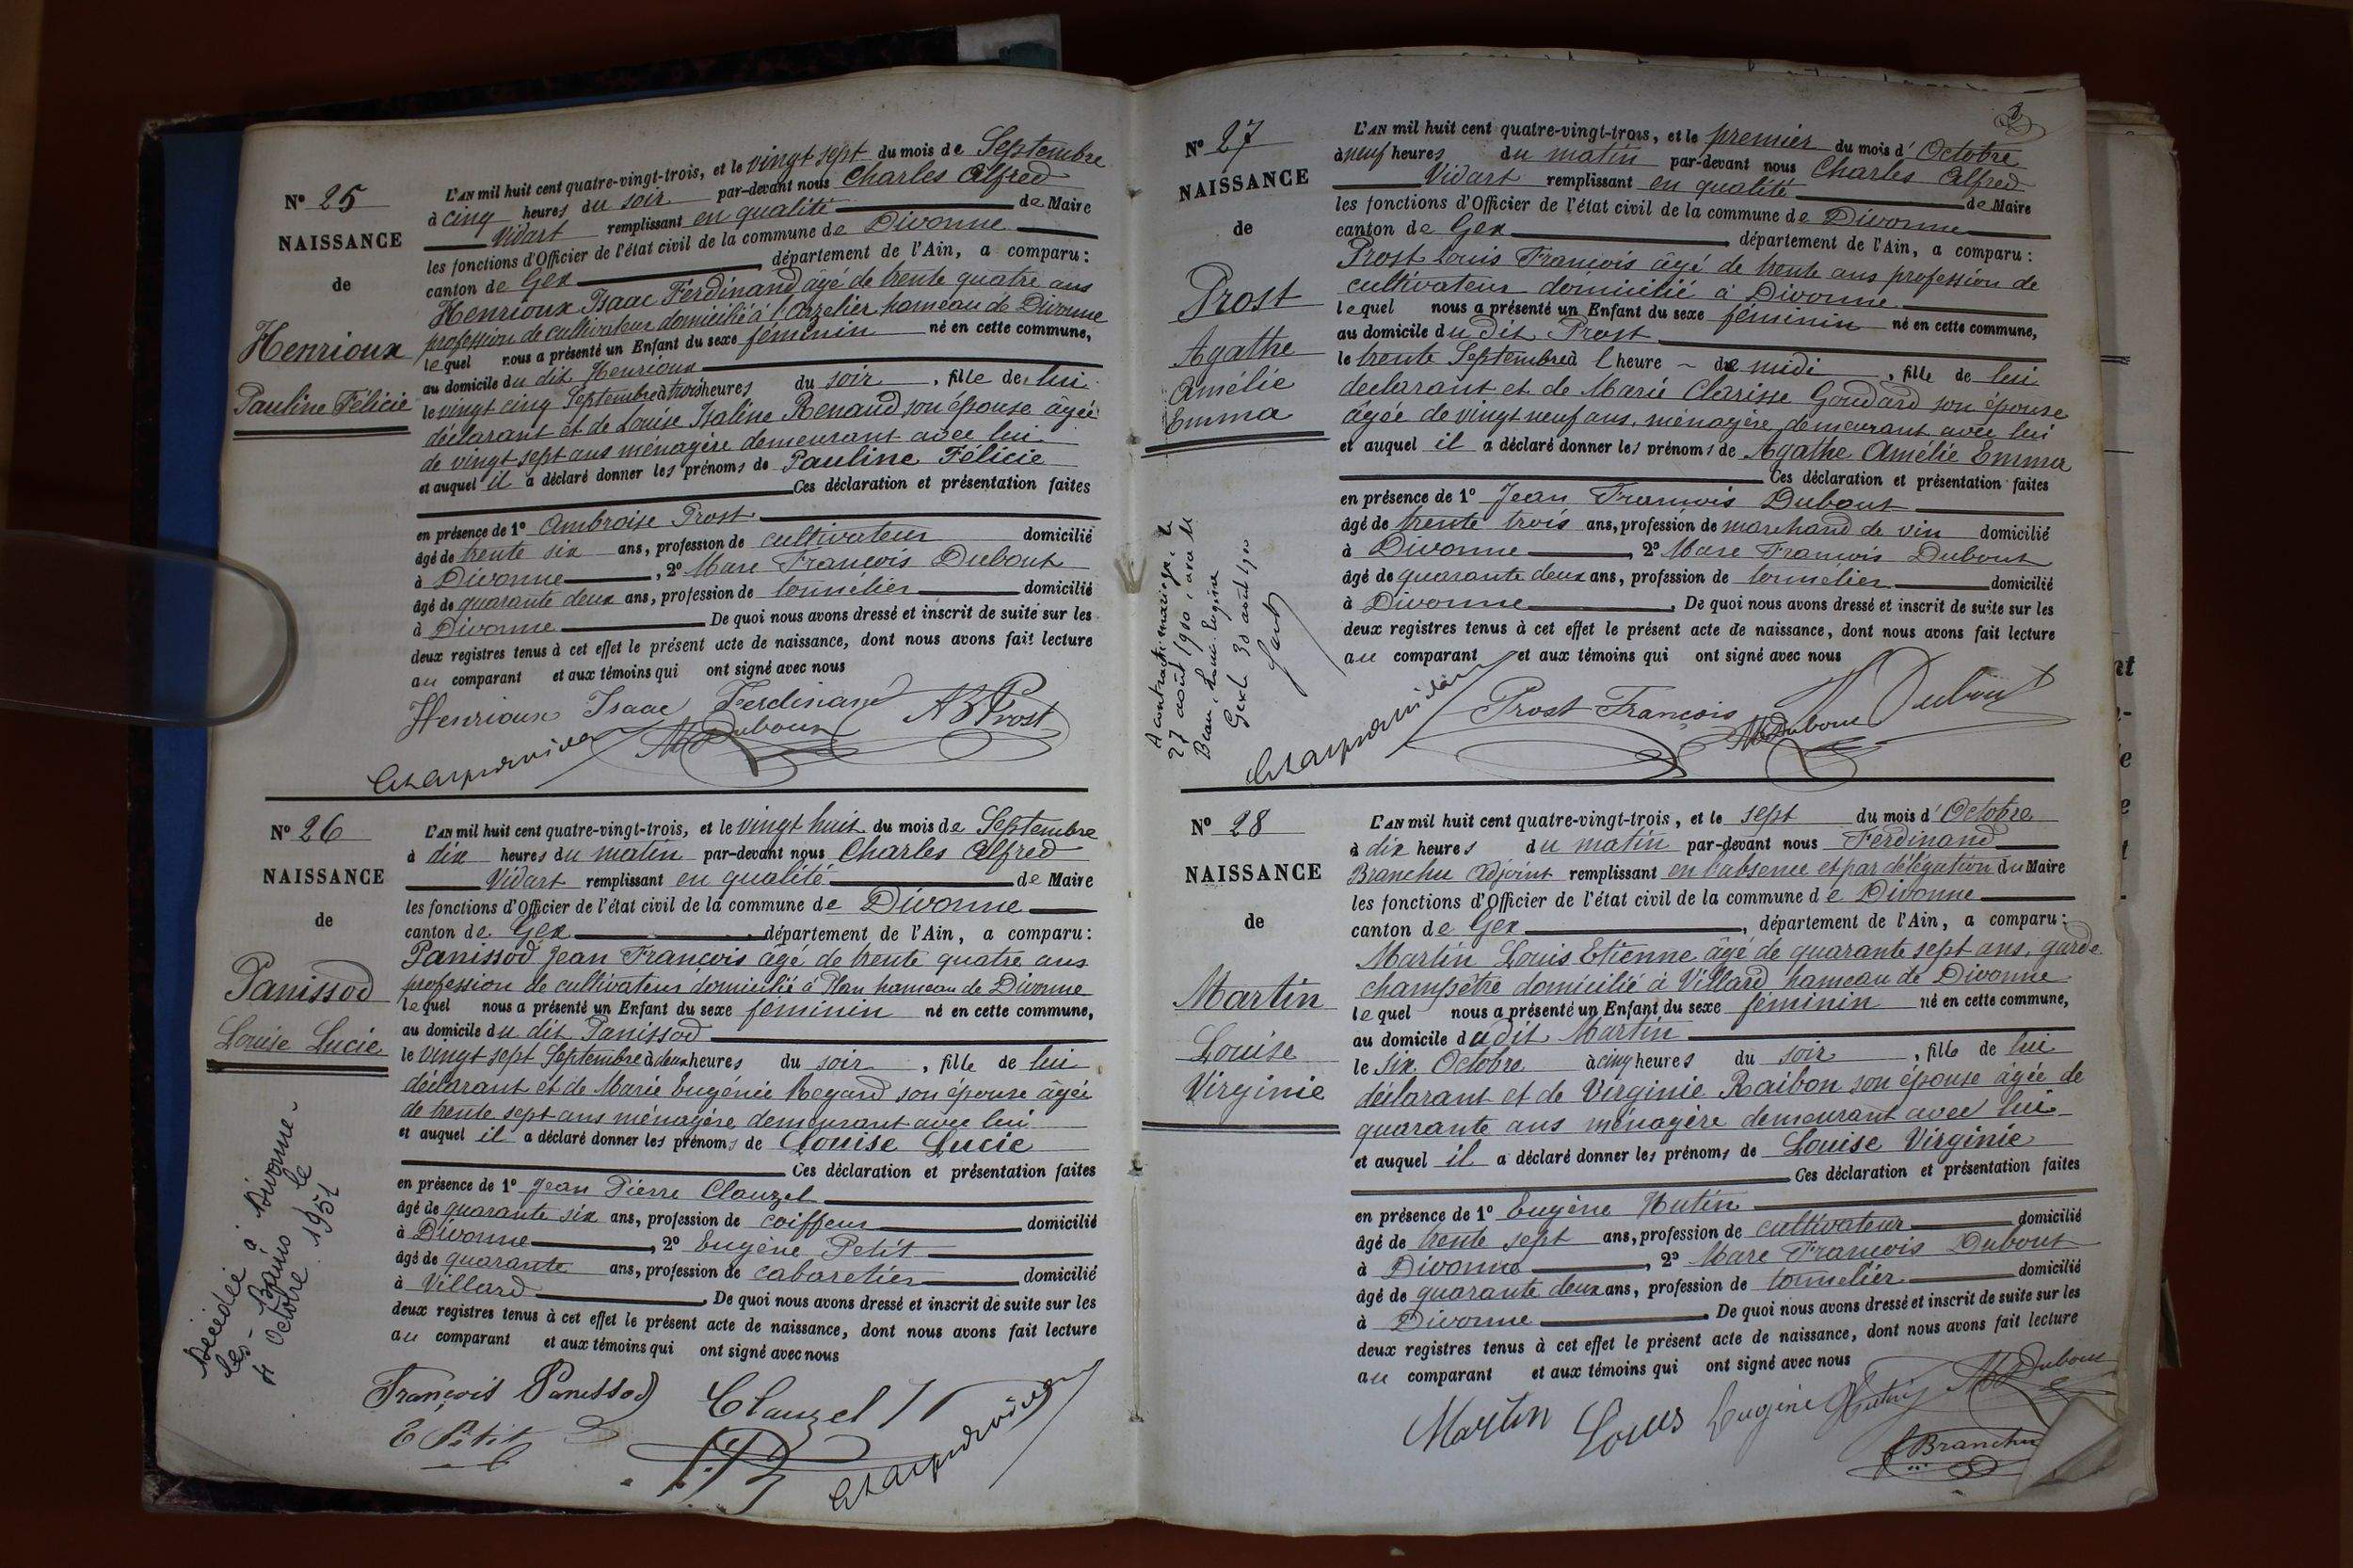 N° 25
NAISSANCE
de
Henrioux
Pauline Félicie
L'AN mil huit cent quatre-vingt-trois, et le vingt sept du mois de Septembre
à cinq heures du soir par-devant nous Charles Alfred
Vidart remplissant en qualité de Maire
les fonctions d'Officier de l'état civil de la commune de Divonne
canton de Gex, département de l'Ain, a comparu:
Henrioux Isaac Ferdinand âgé de trente quatre ans
profession de cultivateur domicilié à l'Arzelier hameau de Divonne
lequel nous a présenté un Enfant du sexe féminin né en cette commune,
au domicile du dit Henrioux
le vingt cinq Septembre à trois heures du soir, fille de lui
déclarant et de Louise Isaline Renaud son épouse âgée
de vingt sept ans ménagère demeurant avec lui
et auquel il a déclaré donner les prénoms de Pauline Félicie
Ces déclaration et présentation faites
en présence de 1° Ambroise Prost
âgé de trente six ans, profession de cultivateur domicilié
à Divonne, 2° Marc François Dubout
âgé de quarante deux ans, profession de tonnelier domicilié
à Divonne. De quoi nous avons dressé et inscrit de suite sur les
deux registres tenus à cet effet le présent acte de naissance, dont nous avons fait lecture
au comparant et aux témoins qui ont signé avec nous
Henrioux Isaac Ferdinand
M Dubout
Prost
N° 26
NAISSANCE
de
Panissod
Louise Lucie
Décédée à Divonne-
les-Bains le
4 Octobre 1951
L'AN mil huit cent quatre-vingt-trois, et le vingt huit du mois de Septembre
à dix heures du matin par-devant nous Charles Alfred
Vidart remplissant en qualité de Maire
les fonctions d'Officier de l'état civil de la commune de Divonne
canton de Gex, département de l'Ain, a comparu:
Panissod Jean François âgé de trente quatre ans
profession de cultivateur domicilié à Plan hameau de Divonne
lequel nous a présenté un Enfant du sexe féminin né en cette commune,
au domicile du dit Panissod
le vingt sept Septembre à deux heures du soir, fille de lui
déclarant et de Marie Eugénie Regard son épouse âgée
de trente sept ans ménagère demeurant avec lui
et auquel il a déclaré donner les prénoms de Louise Lucie
Ces déclaration et présentation faites
en présence de 1° Jean Pierre Clauzel
âgé de quarante six ans, profession de coiffeur domicilié
à Divonne, 2° Eugène Petit
âgé de quarante ans, profession de cabaretier domicilié
à Villard. De quoi nous avons dressé et inscrit de suite sur les
deux registres tenus à cet effet le présent acte de naissance, dont nous avons fait lecture
au comparant et aux témoins qui ont signé avec nous
François Panissod Clauzel
E Petit
N° 27
NAISSANCE
de
Prost
Agathe
Amélie
Emma
A contracté mariage le
27 août 1910, avec
Beau, Louis Eugène
Gex le 30 août 1910
L'AN mil huit cent quatre-vingt-trois, et le premier du mois d'Octobre
à neuf heures du matin par-devant nous Charles Alfred
Vidart remplissant en qualité de Maire
les fonctions d'Officier de l'état civil de la commune de Divonne
canton de Gex, département de l'Ain, a comparu:
Prost Louis François âgé de trente ans profession de
cultivateur domicilié à Divonne
lequel nous a présenté un Enfant du sexe féminin né en cette commune,
au domicile du dit Prost
le trente Septembre à 1 heure de midi, fille de lui
déclarant et de Marie Clarisse Goudard son épouse
âgée de vingt neuf ans, ménagère demeurant avec lui
et auquel il a déclaré donner les prénoms de Agathe Amélie Emma
Ces déclaration et présentation faites
en présence de 1° Jean François Dubout
âgé de trente trois ans, profession de marchand de vin domicilié
à Divonne, 2° Marc François Dubout
âgé de quarante deux ans, profession de tonnelier domicilié
à Divonne. De quoi nous avons dressé et inscrit de suite sur les
deux registres tenus à cet effet le présent acte de naissance, dont nous avons fait lecture
au comparant et aux témoins qui ont signé avec nous
Prost François
M Dubout Dubout
N° 28
NAISSANCE
de
Martin
Louise
Virginie
L'AN mil huit cent quatre-vingt-trois, et le sept du mois d'Octobre
à dix heures du matin par-devant nous Ferdinand
Branchu Adjoint remplissant en l'absence et par délégation du Maire
les fonctions d'Officier de l'état civil de la commune de Divonne
canton de Gex, département de l'Ain, a comparu:
Martin Louis Etienne âgé de quarante sept ans, garde
champêtre domicilié à Villard hameau de Divonne
lequel nous a présenté un Enfant du sexe féminin né en cette commune,
au domicile du dit Martin
le six Octobre à cinq heures du soir, fille de lui
déclarant et de Virginie Raibon son épouse âgée de
quarante ans ménagère demeurant avec lui
et auquel il a déclaré donner les prénoms de Louise Virginie
Ces déclaration et présentation faites
en présence de 1° Eugène Hutin
âgé de trente sept ans, profession de cultivateur domicilié
à Divonne, 2° Marc François Dubout
âgé de quarante deux ans, profession de tonnelier domicilié
à Divonne. De quoi nous avons dressé et inscrit de suite sur les
deux registres tenus à cet effet le présent acte de naissance, dont nous avons fait lecture
au comparant et aux témoins qui ont signé avec nous
Martin Louis Eugène Hutin M Dubout
Branchu